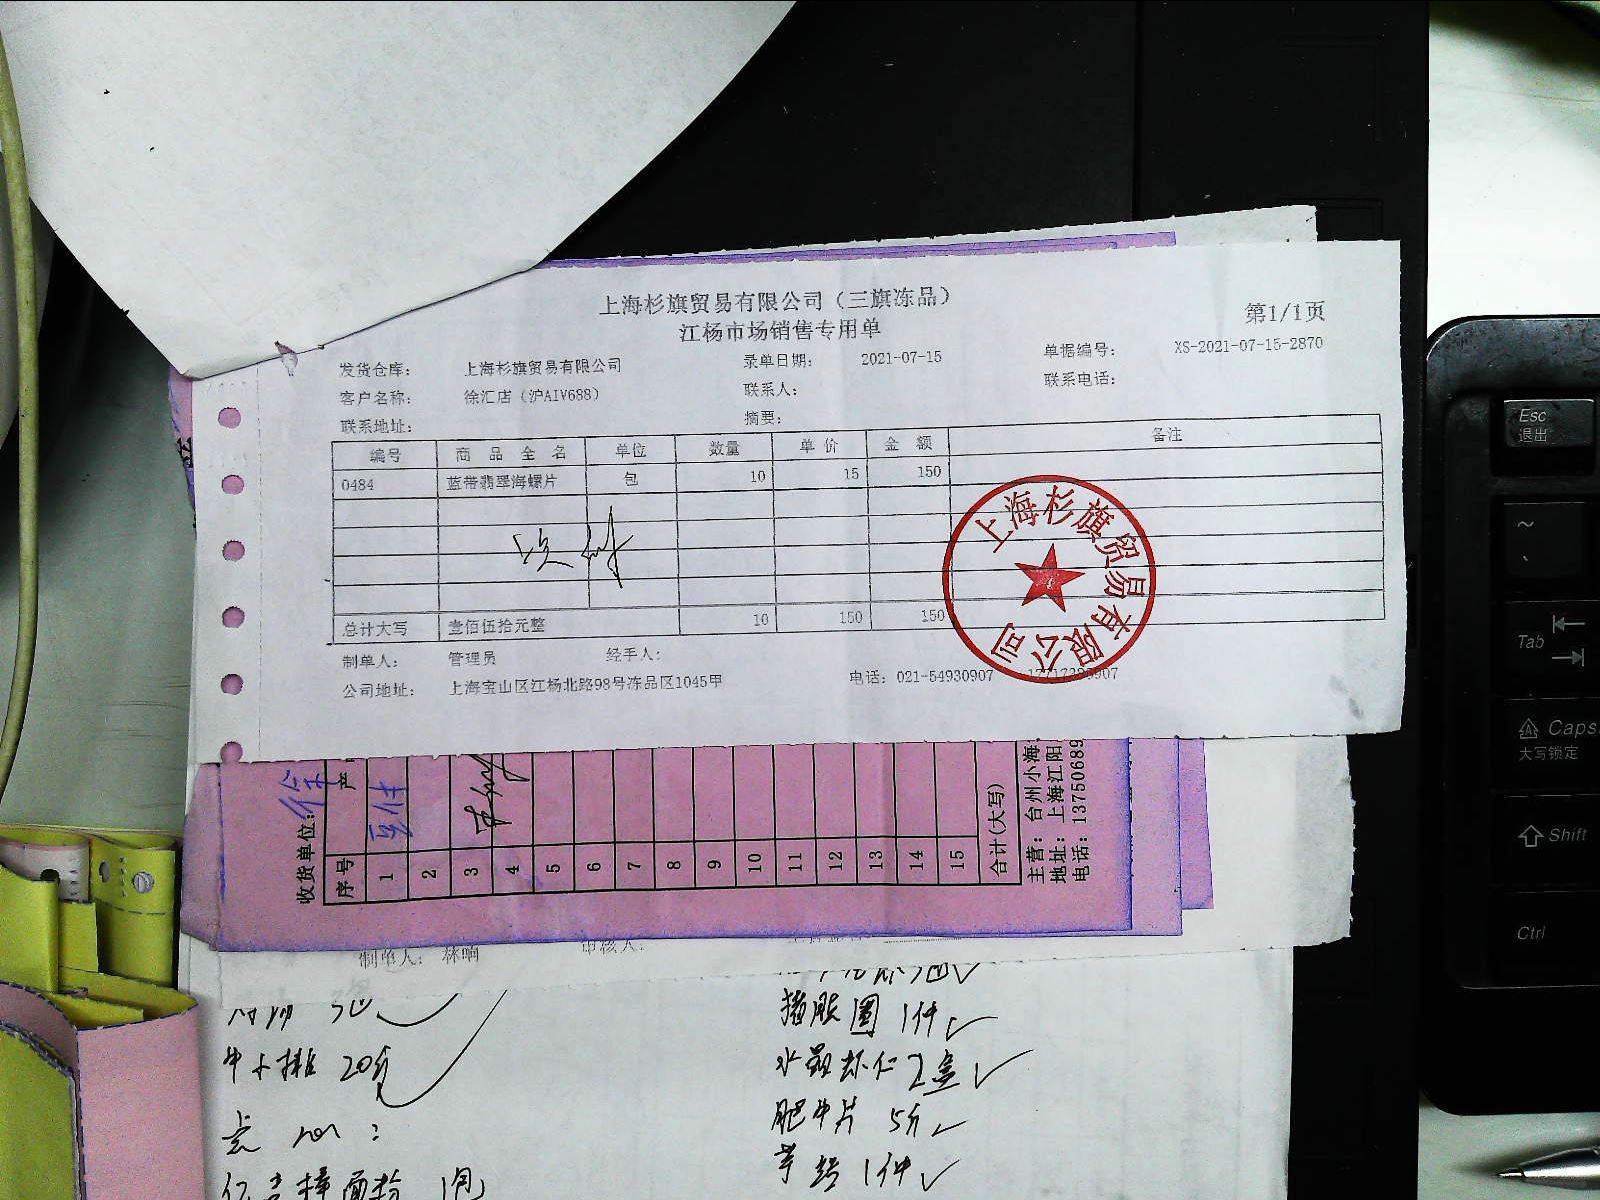 上海杉旗贸易有限公司（三旗冻品）
江杨市场销售专用单
第1/1页
发货仓库： 上海杉旗贸易有限公司 录单日期： 2021-07-15 单据编号： XS-2021-07-15-2870
客户名称： 徐汇店（沪AIV688） 联系人： 联系电话：
联系地址： 摘要：
编号 商品全名 单位 数量 单价 金额 备注
0484 蓝带翡翠海螺片 包 10 15 150
总计大写 壹佰伍拾元整 10 150 150
制单人： 管理员 经手人：
公司地址： 上海宝山区江杨北路98号冻品区1045甲 电话：021-54930907
上海杉旗贸易有限公司
收货单位：
序号 产
1
2
3
4
5
6
7
8
9
10
11
12
13
14
15
合计(大写)
主营：台州小海
地址：上海江阳
电话：13750689
制单人： 林响 审核人：
牛小排 20斤
猪脲圈 1件
水晶虾仁 2盒
肥牛片 5斤
1件
面粉 1包
Esc
退出
~
Tab
Caps
大写锁定
Shift
Ctrl